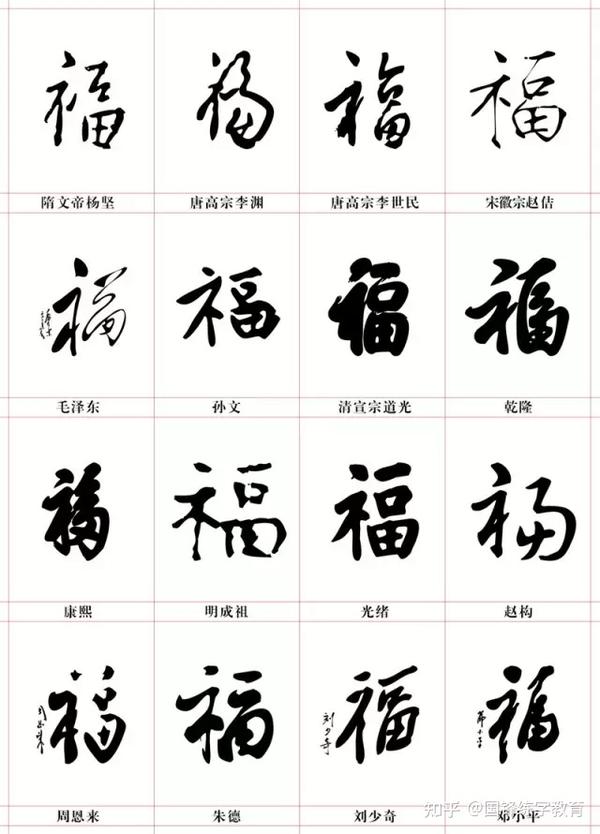 福 福 福 福
隋文帝杨坚 唐高宗李渊 唐高宗李世民 宋徽宗赵佶
福 福 福 福
毛泽东 孙文 清宣宗道光 乾隆
福 福 福 福
康熙 明成祖 光绪 赵构
福 福 福 福
周恩来
刘少奇
邓小平
周恩来 朱德 刘少奇 邓小平
知乎 @国锋练字教育